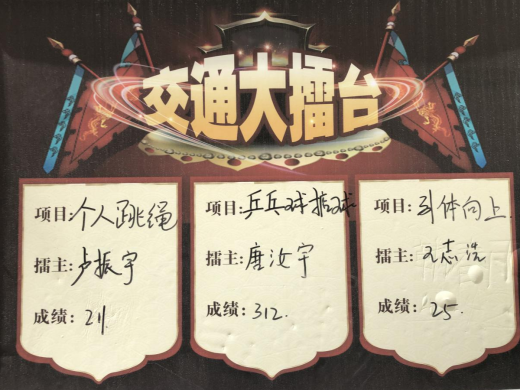 交通大擂台
项目:个人跳绳
擂主:卢振宇
成绩:211.
项目:乒乓球掂球
擂主:唐汝宇
成绩:312.
项目:引体向上.
擂主:王志浩
成绩:25.